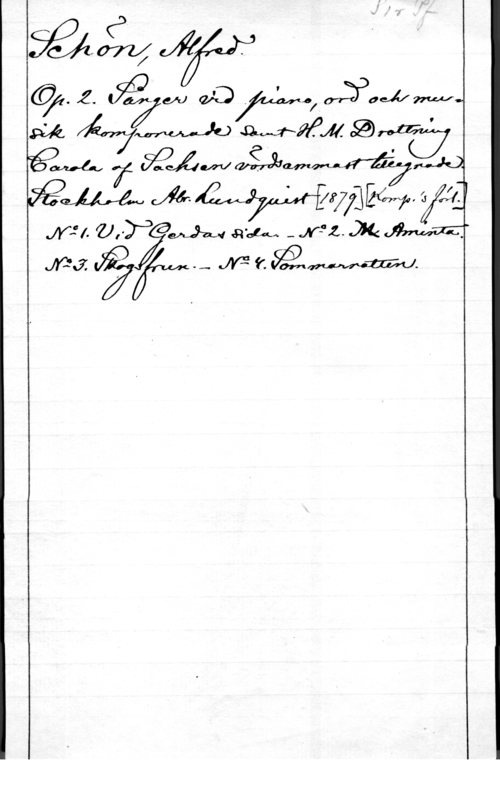 Schön, Alfred.
Op. 2. Sånger vid piano, ord och mu-
sik komponerade samt H. M. Drottning
Carola af Sachsen vördsammast tillegnade
Stockholm Abr. Lundquist [1879] [Komp.'s förl.]
Nº 1. Vid Gerdas sida. - Nº 2. Till Aminta.
Nº 3. Skogsfrun. - Nº 4. Sommarnatten.